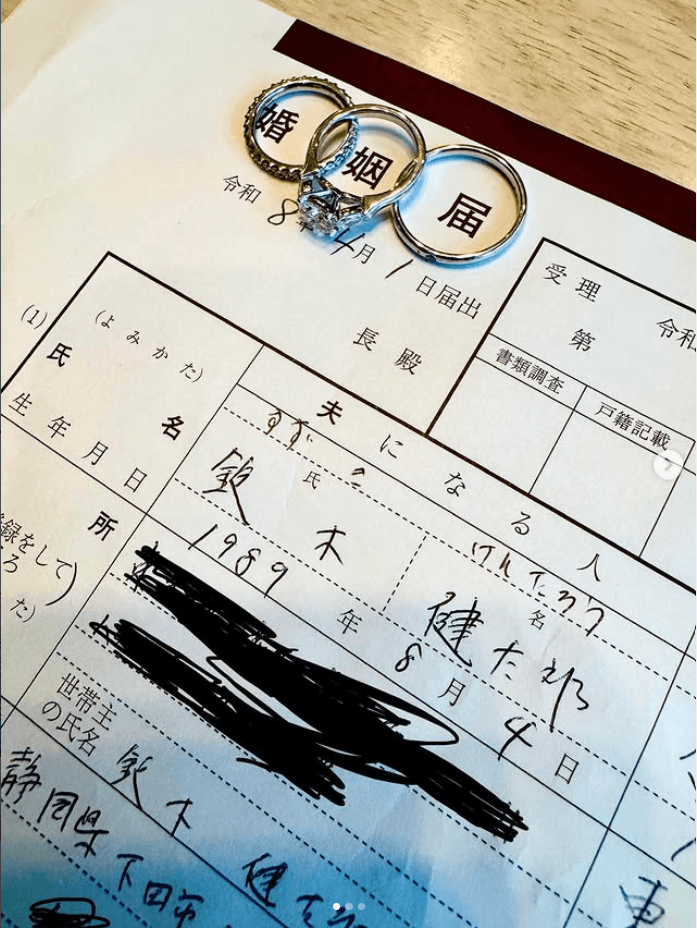 婚姻届
令和 8年 4月 1日届出
長殿
受理 令和
第
書類調査 戸籍記載
(1)
(よみかた)
氏名
生年月日
夫になる人
すずき けんたろう
氏 名
鈴木 健太郎
1989年 8月 4日
所
録をして
ろ
た)
世帯主
の氏名
鈴木 健太郎
静岡県下田市